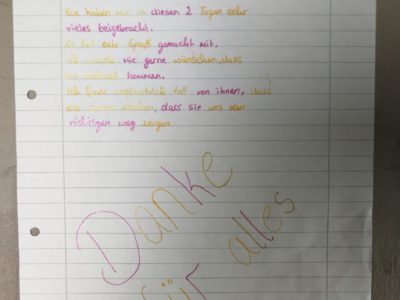 Sie haben mir in diesen 2 Tagen sehr
vieles beigebracht.
es hat sehr Spaß gemacht mit.
ich würde mir gerne wünschen, dass
sie kommen.
Ich finde unglaublich toll von ihnen, dass
sie machen, dass sie uns den
richtigen weg zeigen
Danke
für alles